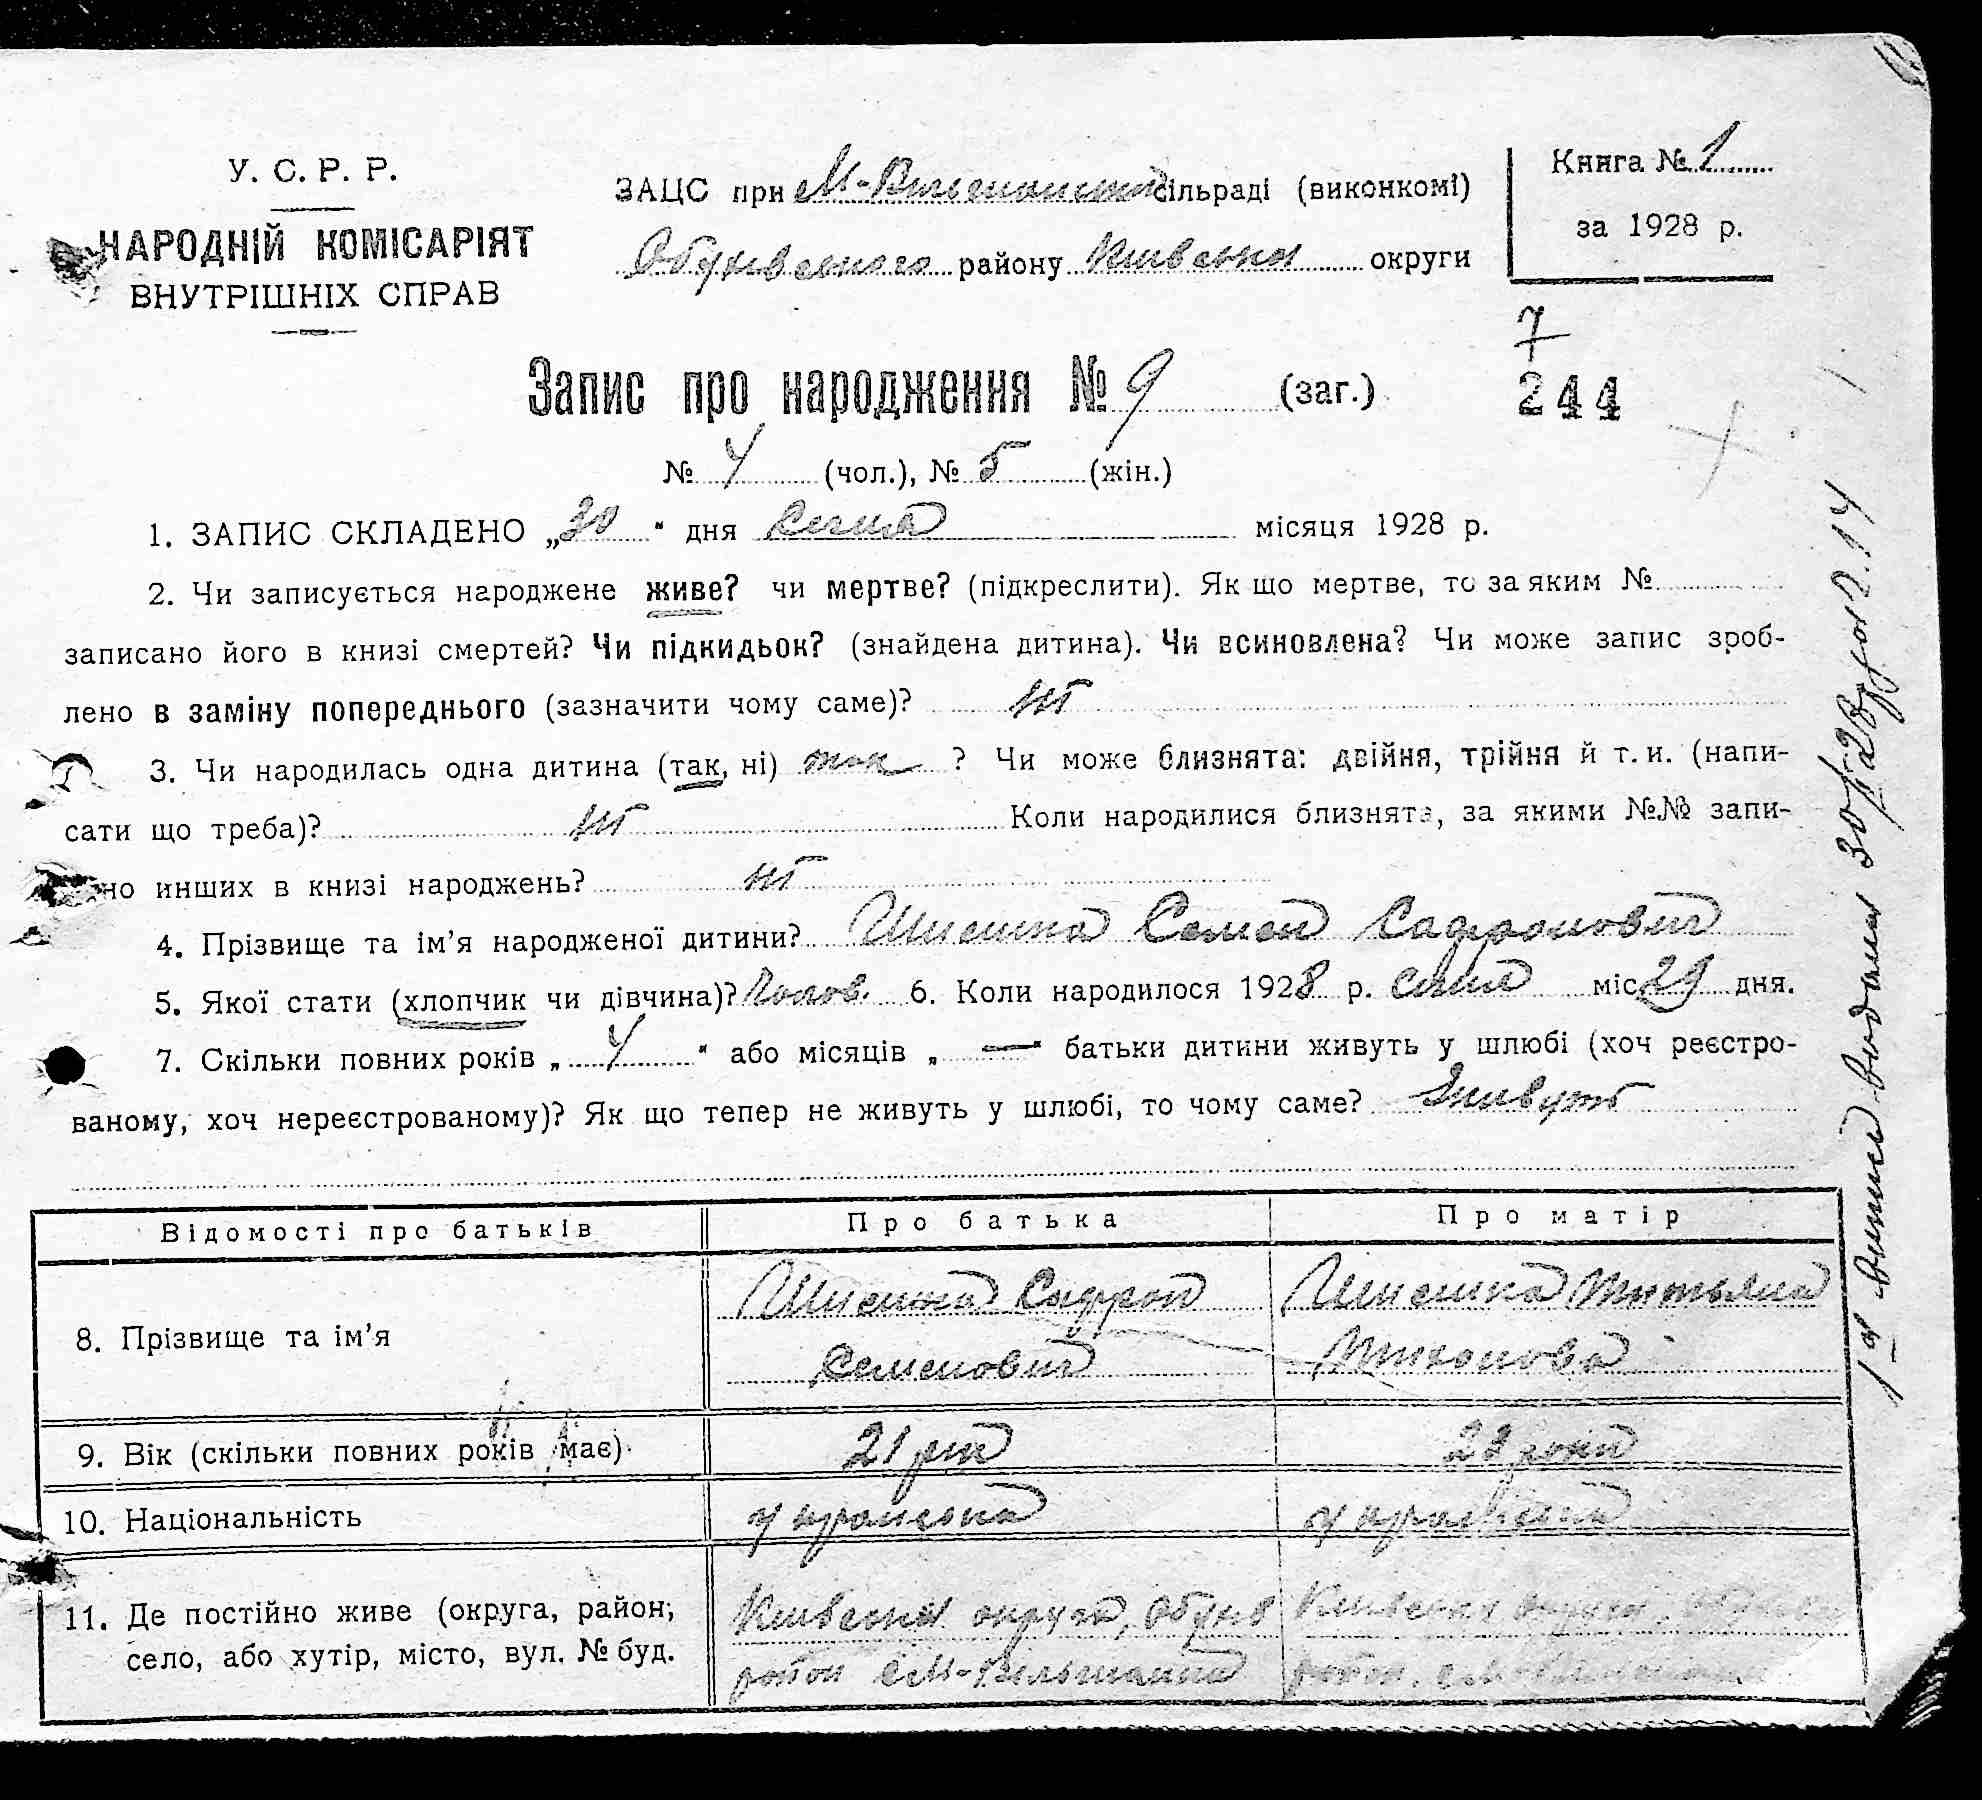 У. С. Р. Р.
НАРОДНІЙ КОМІСАРІЯТ
ВНУТРІШНІХ СПРАВ
ЗАЦС при М-Вільшанській сільраді (виконкомі)
Обухівського району Київської округи
Книга № 1
за 1928 р.
7
244
Запис про народження № 9 (заг.)
№ 4 (чол.), № 5 (жін.)
1. ЗАПИС СКЛАДЕНО „30“ дня Січня місяця 1928 р.
2. Чи записується народжене живе? чи мертве? (підкреслити). Як що мертве, то за яким №
записано його в книзі смертей? Чи підкидьок? (знайдена дитина). Чи всиновлена? Чи може запис зроб-
лено в заміну попереднього (зазначити чому саме)? ні
3. Чи народилась одна дитина (так, ні) так ? Чи може близнята: двійня, трійня й т. и. (напи-
сати що треба)? ні Коли народилися близнята, за якими №№ запи-
но инших в книзі народжень? ні
4. Прізвище та ім’я народженої дитини? Шишка Семен Сафронович
5. Якої стати (хлопчик чи дівчина)? Чолов. 6. Коли народилося 1928 р. Січня міс. 29 дня.
7. Скільки повних років „ 4 “ або місяців „ — “ батьки дитини живуть у шлюбі (хоч реєстро-
ваному, хоч нереєстрованому)? Як що тепер не живуть у шлюбі, то чому саме? Живуть
Відомості про батьків Про батька Про матір
8. Прізвище та ім’я Шишка Сафрон Семенович Шишка Титьяна Тихонова
9. Вік (скільки повних років має) 21 рік 22 роки
10. Національність українська українська
11. Де постійно живе (округа, район, село, або хутір, місто, вул. № буд. Київська округа, Обухів район с М-Вільшанка Київська округа, район. с М-Вільшанка
видана 30/I 28